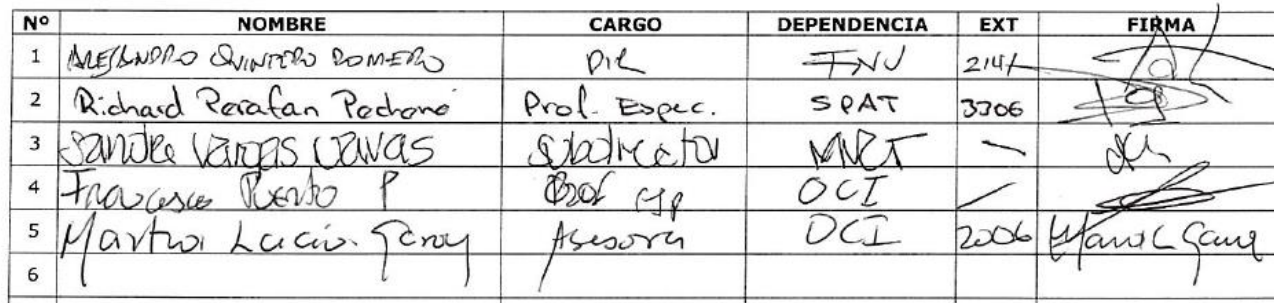 Nº NOMBRE CARGO DEPENDENCIA EXT FIRMA
1 ALEJANDRO QUINTERO ROMERO DIR INV 2141
2 Richard Perafan Pechené Prof. Espec. SPAT 3306
3 Sandra Vargas Subdirector
4 Francisco Puerto P Prof OCI
5 Martha Lucía Garay Asesora OCI 2006
6